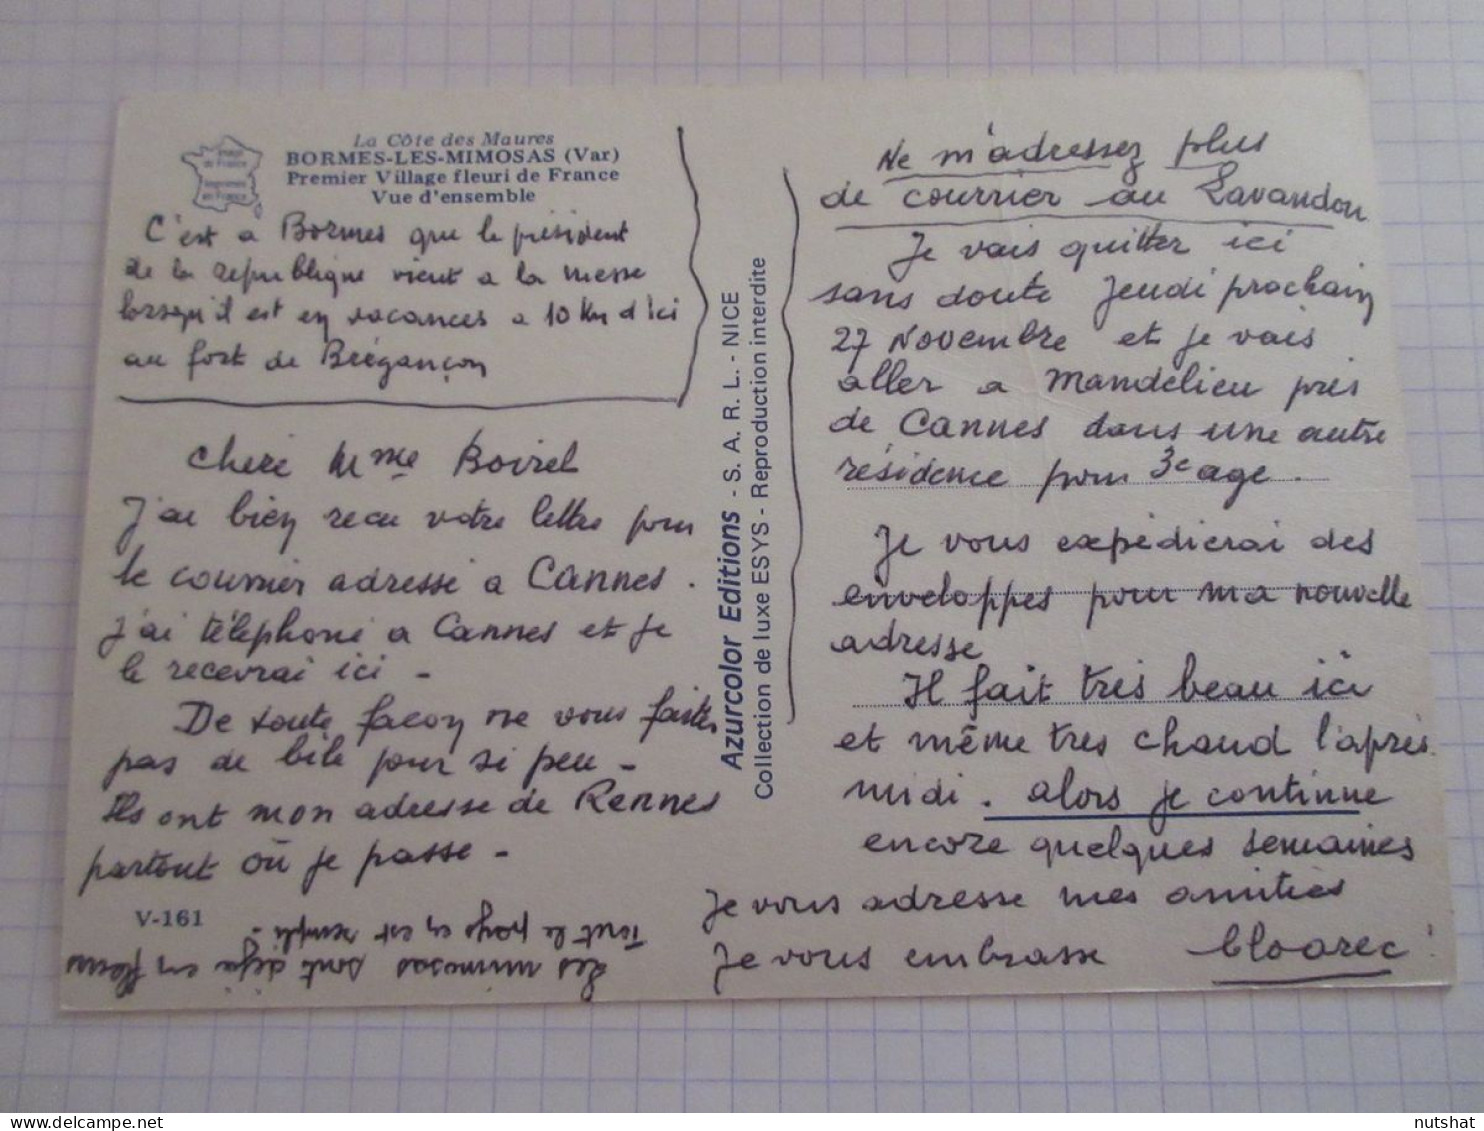 Image
de France
Imprimée
en France
La Côte des Maures
BORMES-LES-MIMOSAS (Var)
Premier Village fleuri de France
Vue d'ensemble
C'est a Bormes que le président
de la republique vient a la messe
lorsqu'il est en vacances a 10 Km d'ici
au fort de Brégançon
Chere Mme Boirel
J'ai bien recu votre lettre pour
le courrier adressé a Cannes.
J'ai téléphoné a Cannes et je
le recevrai ici -
De toute façon ne vous faites
pas de bile pour si peu -
Ils ont mon adresse de Rennes
partout où je passe -
V-161
Les mimosas sont déja en fleurs
Tout le pays en est rempli -
Azurcolor Editions - S. A. R. L. - NICE
Collection de luxe ESYS - Reproduction interdite
Ne m'adressez plus
de courrier au Lavandou
Je vais quitter ici
sans doute Jeudi prochain
27 Novembre et je vais
aller a Mandelieu près
de Cannes dans une autre
résidence pour 3e age.
Je vous expédierai des
enveloppes pour ma nouvelle
adresse
Il fait très beau ici
et même très chaud l'après
midi. alors je continue
encore quelques semaines
Je vous adresse mes amitiés
Je vous embrasse Cloarec
nutshat
delcampe.net